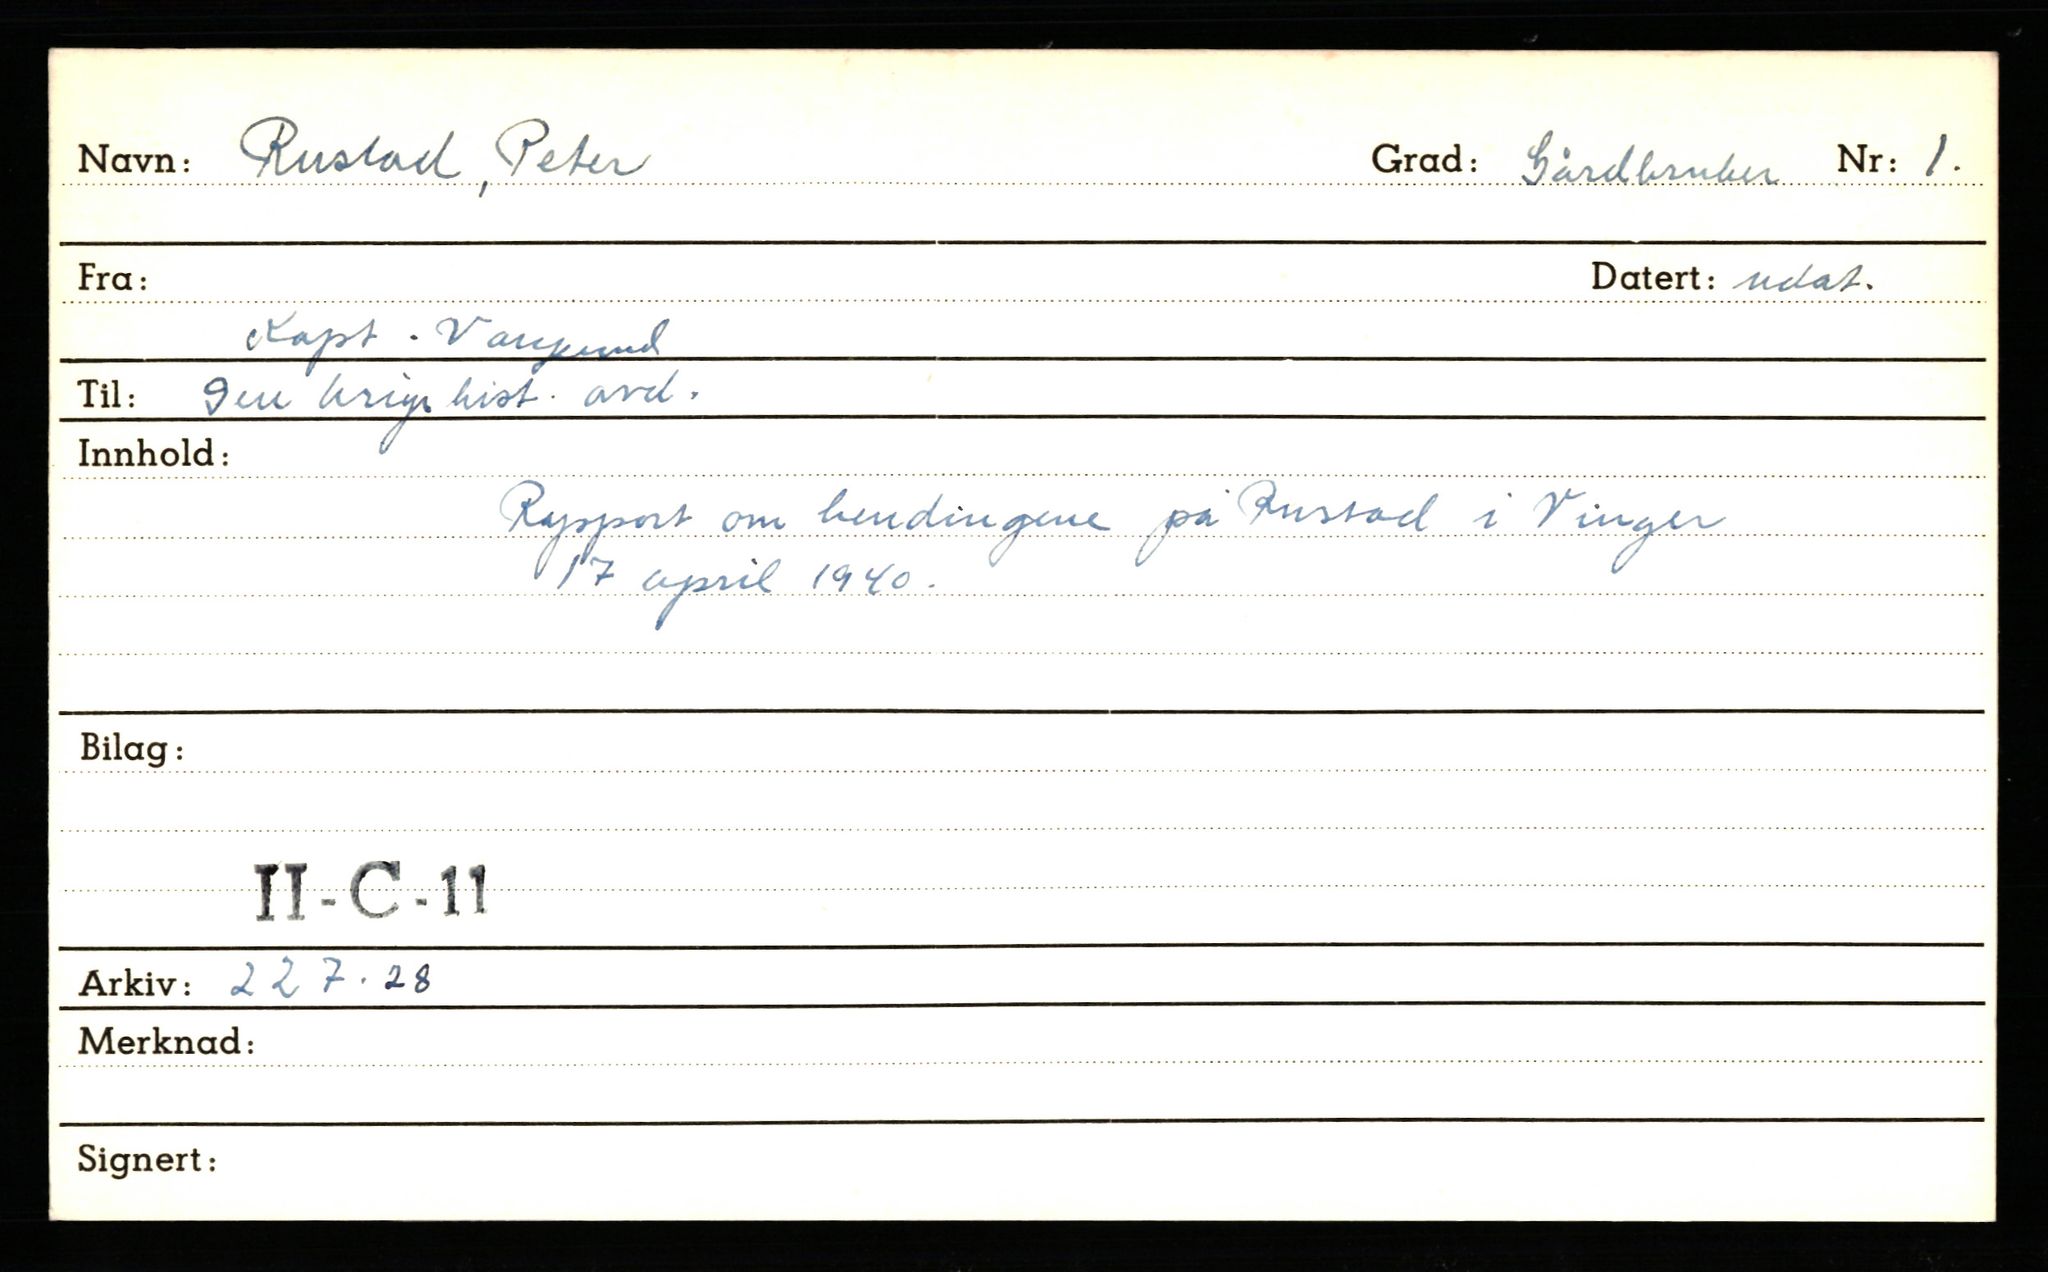 Navn: Rustad, Peter Grad: Gårdbruker Nr: 1.
Fra: Datert: udat.
Kapt.
Til: Den krigshist. avd.
Innhold:
Rapport om hendingene på Rustad i Vinger
17 april 1940.
Bilag:
II-C-11
Arkiv: 227.28
Merknad:
Signert: